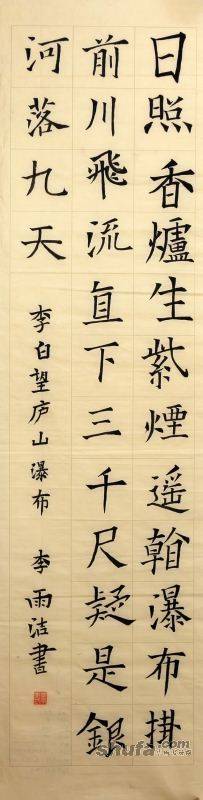 日照香爐生紫煙遥翰瀑布掛
前川飛流直下三千尺疑是銀
河落九天
李白望庐山瀑布 李雨洁書
shufa.com